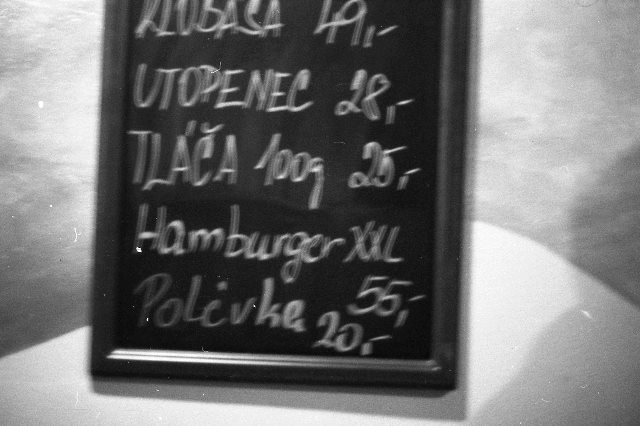 KLOBÁSA 49,-
UTOPENEC 28,-
TLÁČA 100g 25,-
Hamburger XXL
55,-
Polévka 20,-